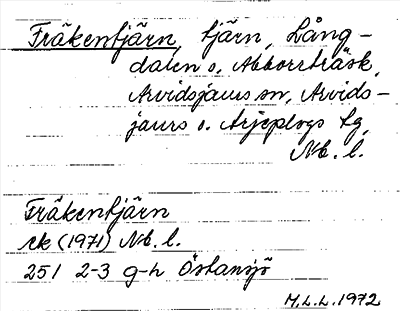 Fräkentjärn, tjärn, Lång-
dalen o, Abborrträsk,
Arvidsjaurs sn, Arvids-
jaurs o. Arjeplogs tg,
Nb. l.
Fräkentjärn
ek (1971) Nb. l.
25 I 2-3 g-h Östansjö
M.L.L. 1972